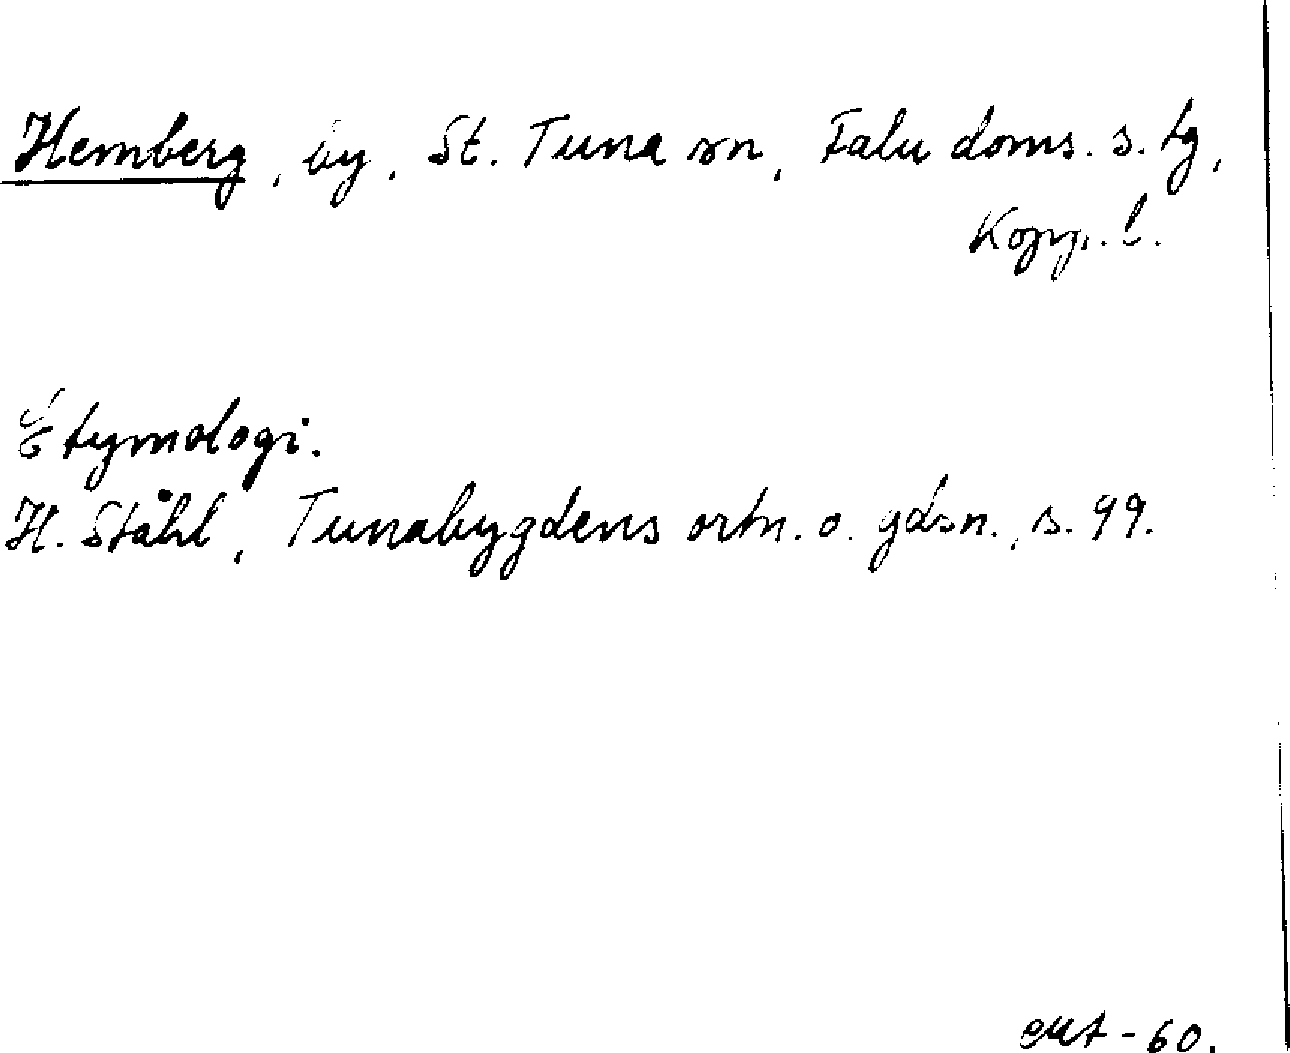 Hemberg, by, St. Tuna sn, Falu doms. s. tg,
Kopp. l.
Etymologi.
H. Ståhl, Tunabygdens ortn. o. gdsn., s. 99.
exc - 60.